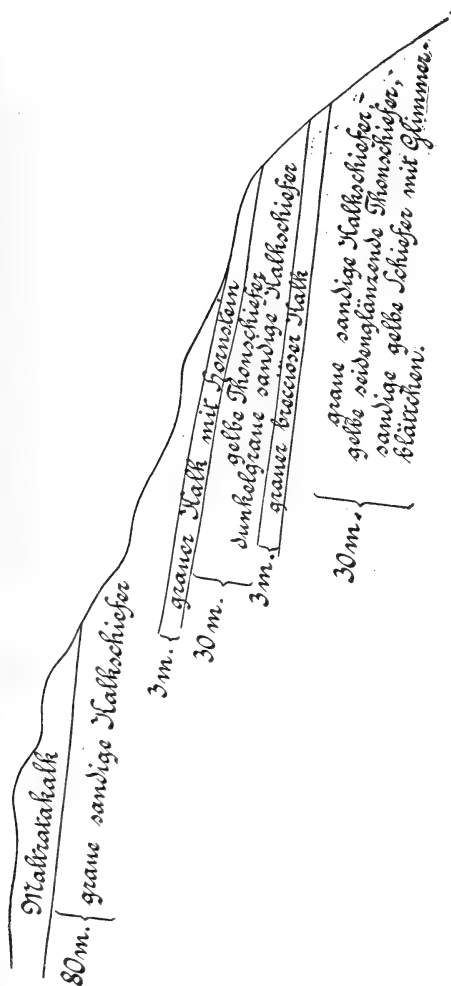 Maltratakalk
80m. { graue sandige Kalkschiefer
3m. { grauer Kalk mit Hornstein
30m. { gelbe Thonschiefer
dunkelgraue sandige Kalkschiefer
3m. { grauer brecciöser Kalk
30m. { graue sandige Kalkschiefer,-
gelbe seidenglänzende Thonschiefer,-
sandige gelbe Schiefer mit Glimmer-
blättchen.